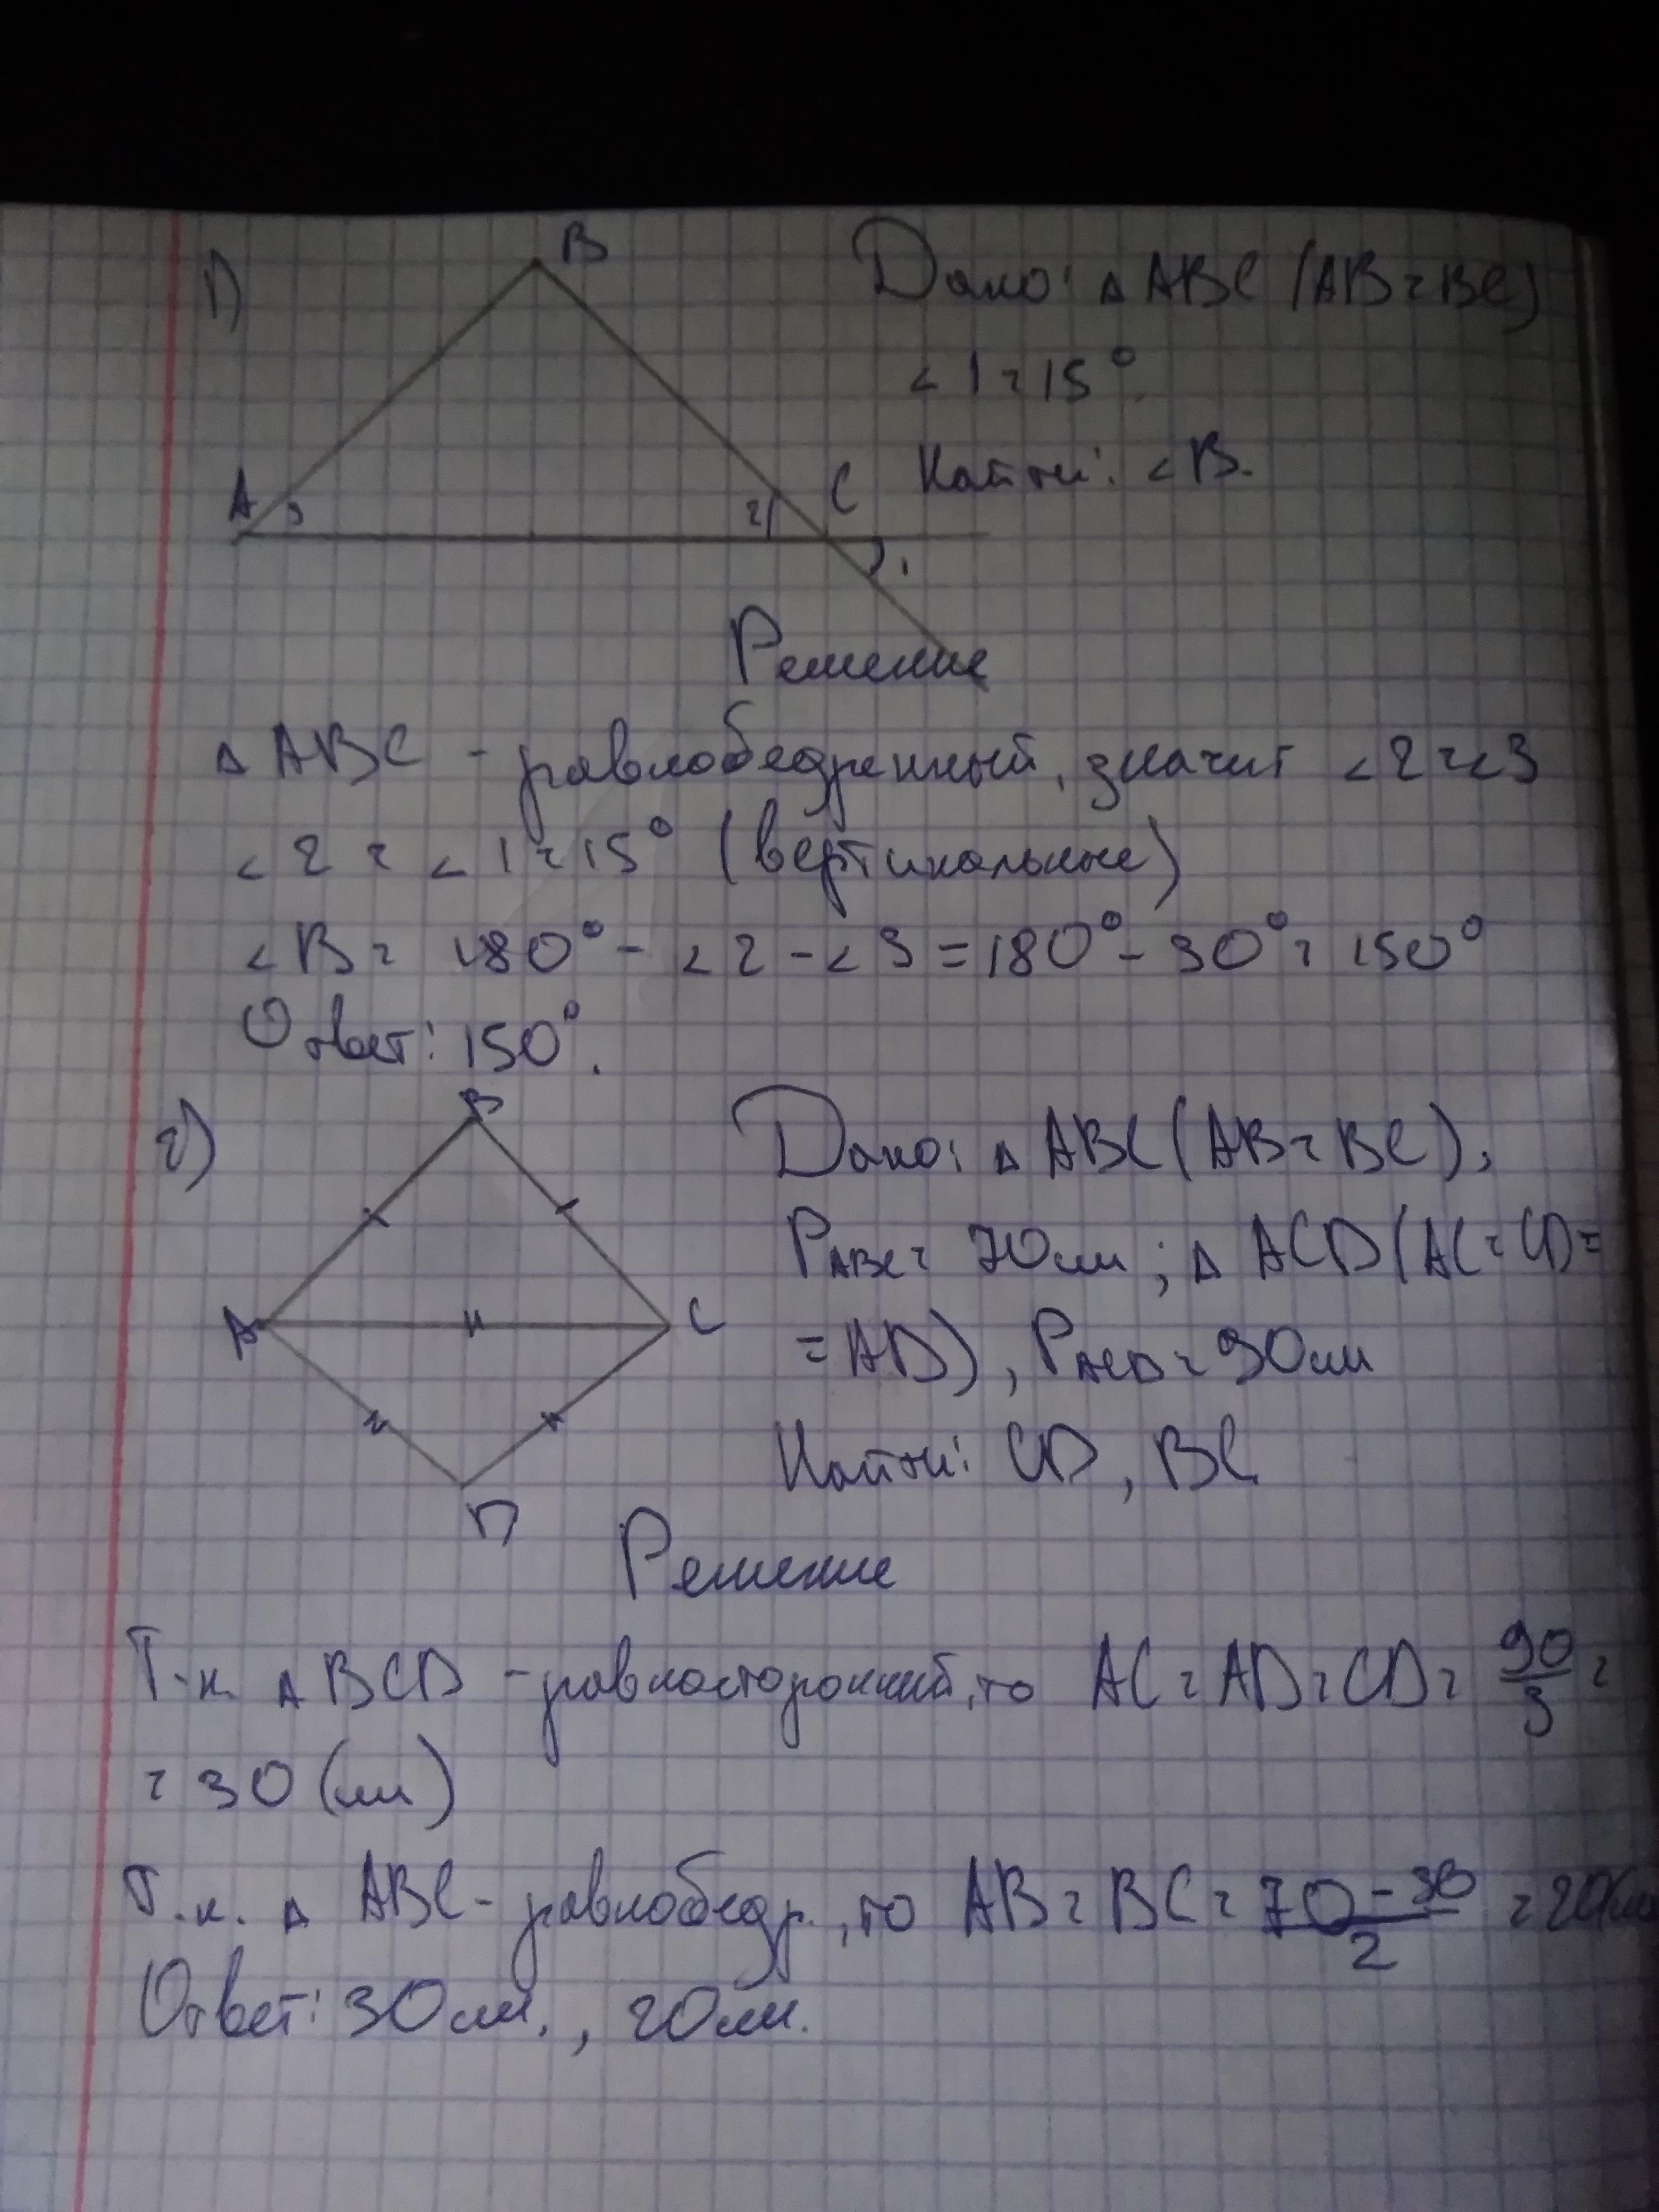 1)
B
Дано: △ ABC (AB=BC)
∠1=15°.
A 3 2 C 1
Найти: ∠B.
Решение
△ ABC - равнобедренный, значит ∠2=∠3
∠2 = ∠1=15° (вертикальные)
∠B= 180° - ∠2 - ∠3 = 180° - 30° = 150°
Ответ: 150°.
2)
B
Дано: △ ABC (AB=BC),
P ABC = 70 см; △ ACD (AC=CD=
A C
=AD), P ACD = 90 см
Найти: CD, BC
D
Решение
Т.к. △ BCD - равносторонний, то AC=AD=CD= 90/3 =
= 30 (см)
Т.к. △ ABC - равнобедр., то AB=BC= 70-30/2 = 20(см
Ответ: 30 см., 20 см.